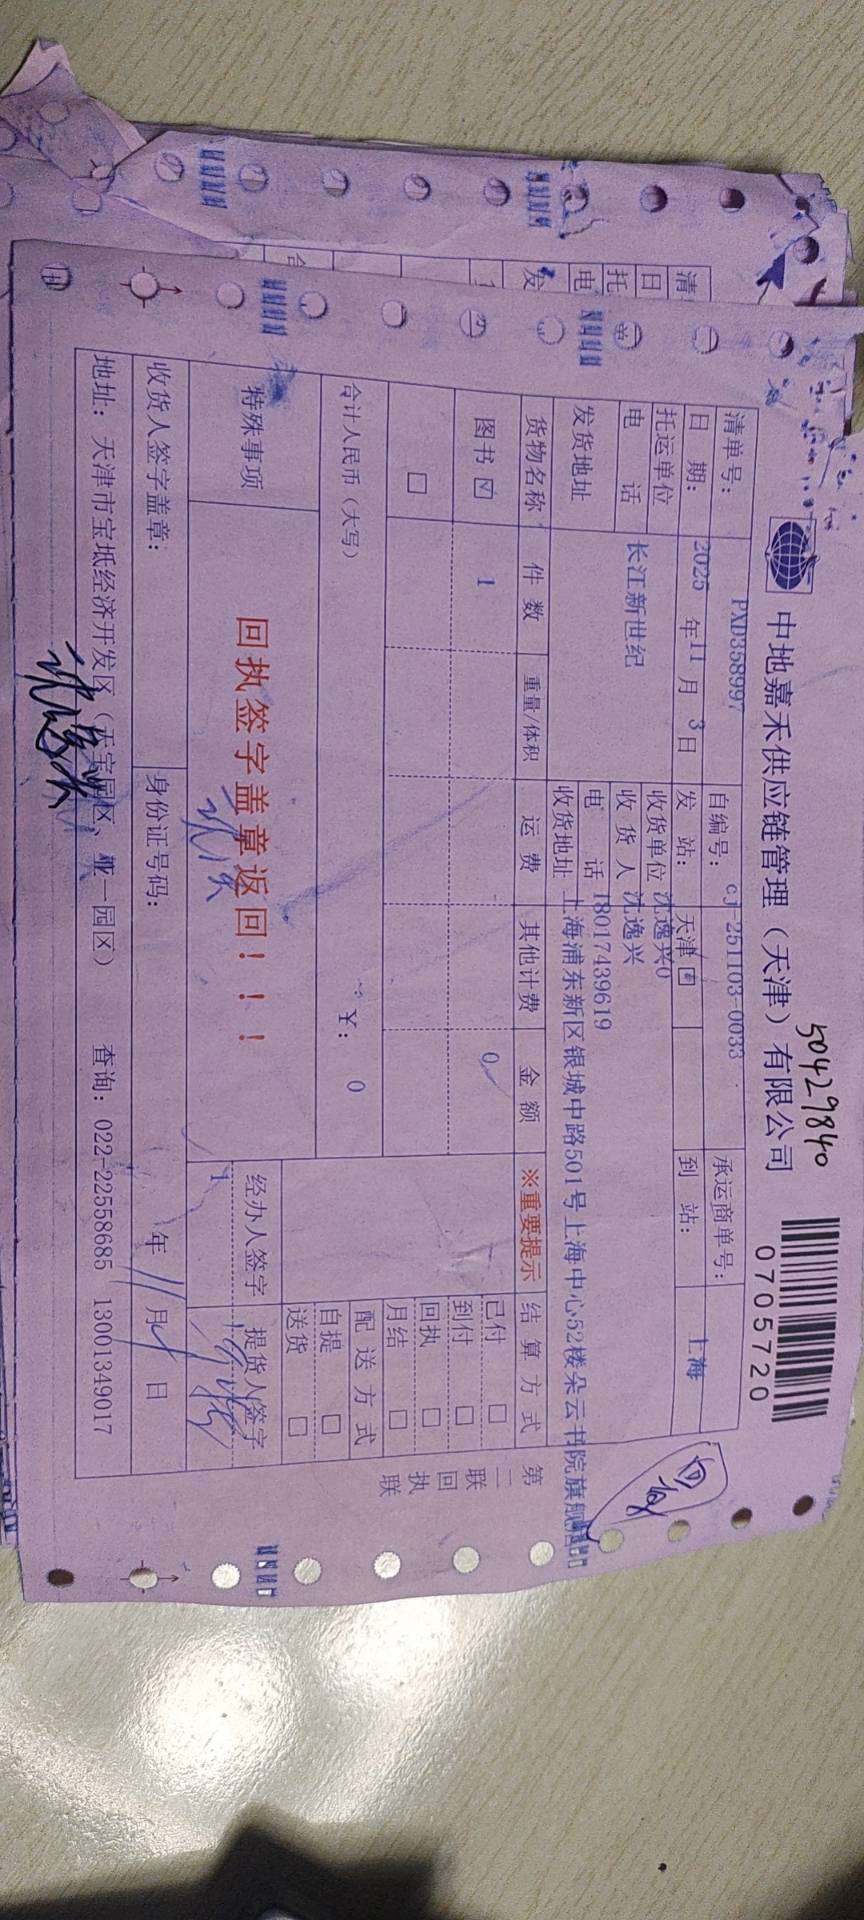 50429840
中地嘉禾供应链管理（天津）有限公司
0705720
清单号： PXD358997 自编号： cj-251103-0033 承运商单号：
日 期： 2025 年 11 月 3 日 发 站： 天津 到 站： 上海
托运单位 长江新世纪 收货单位 沈逸兴0
电 话 收 货 人 沈逸兴
电 话 18017439619
发货地址 收货地址 上海浦东新区银城中路501号上海中心52楼朵云书院旗舰店
货物名称 件 数 重量/体积 运 费 其他计费 金 额 ※重要提示 结 算 方 式
图书 ☑ 1 0 已付 □
□ 到付 □
回执 □
月结 □
合计人民币（大写） ￥： 0 配 送 方 式
自提 □
送货 □
特殊事项 回执签字盖章返回！！！ 经办人签字 提货人签字
1
收货人签字盖章： 身份证号码： 年 11 月 日
地址：天津市宝坻经济开发区（天宝园区、亚一园区） 查询：022-22558685 13001349017
第二联 回执联
清
日
托
电
发